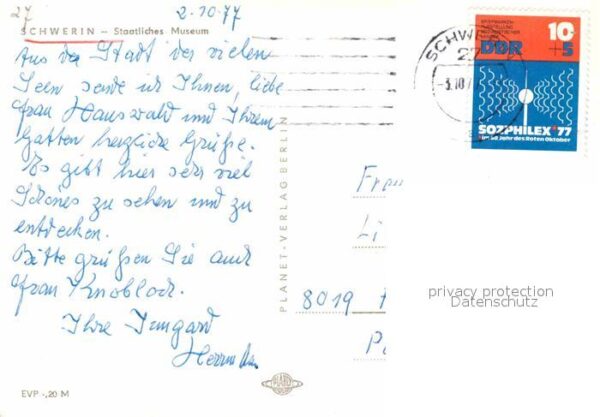 27
2.10.77
SCHWERIN – Staatliches Museum
Aus der Stadt der vielen
Seen sende ich Ihnen, liebe
Frau Hauswald und Ihrem
Gatten herzliche Grüße.
Es gibt hier sehr viel
Schönes zu sehen und zu
entdecken.
Bitte grüßen Sie auch
Frau Knobloch.
Ihre Irmgard
PLANET-VERLAG BERLIN
EVP -,20 M
PLANET
SCHWER
27
3.10.7
10
+5
DDR
SOZPHILEX '77
im 60. Jahr des Roten Oktober
Frau
Li
8019
privacy protection
Datenschutz